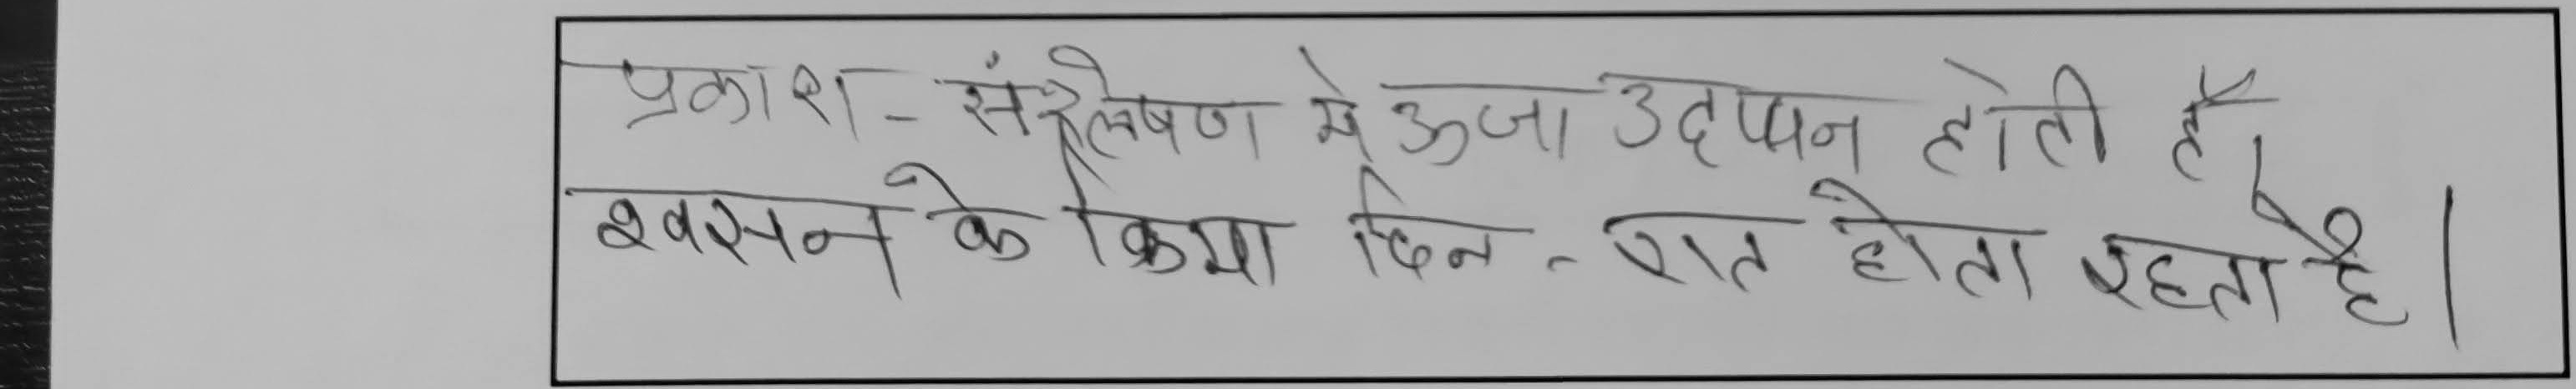 प्रकाश - संश्लेषण मे ऊजा उदप्पन होती है।
श्वसन के क्रिया दिन - रात होता रहता है।